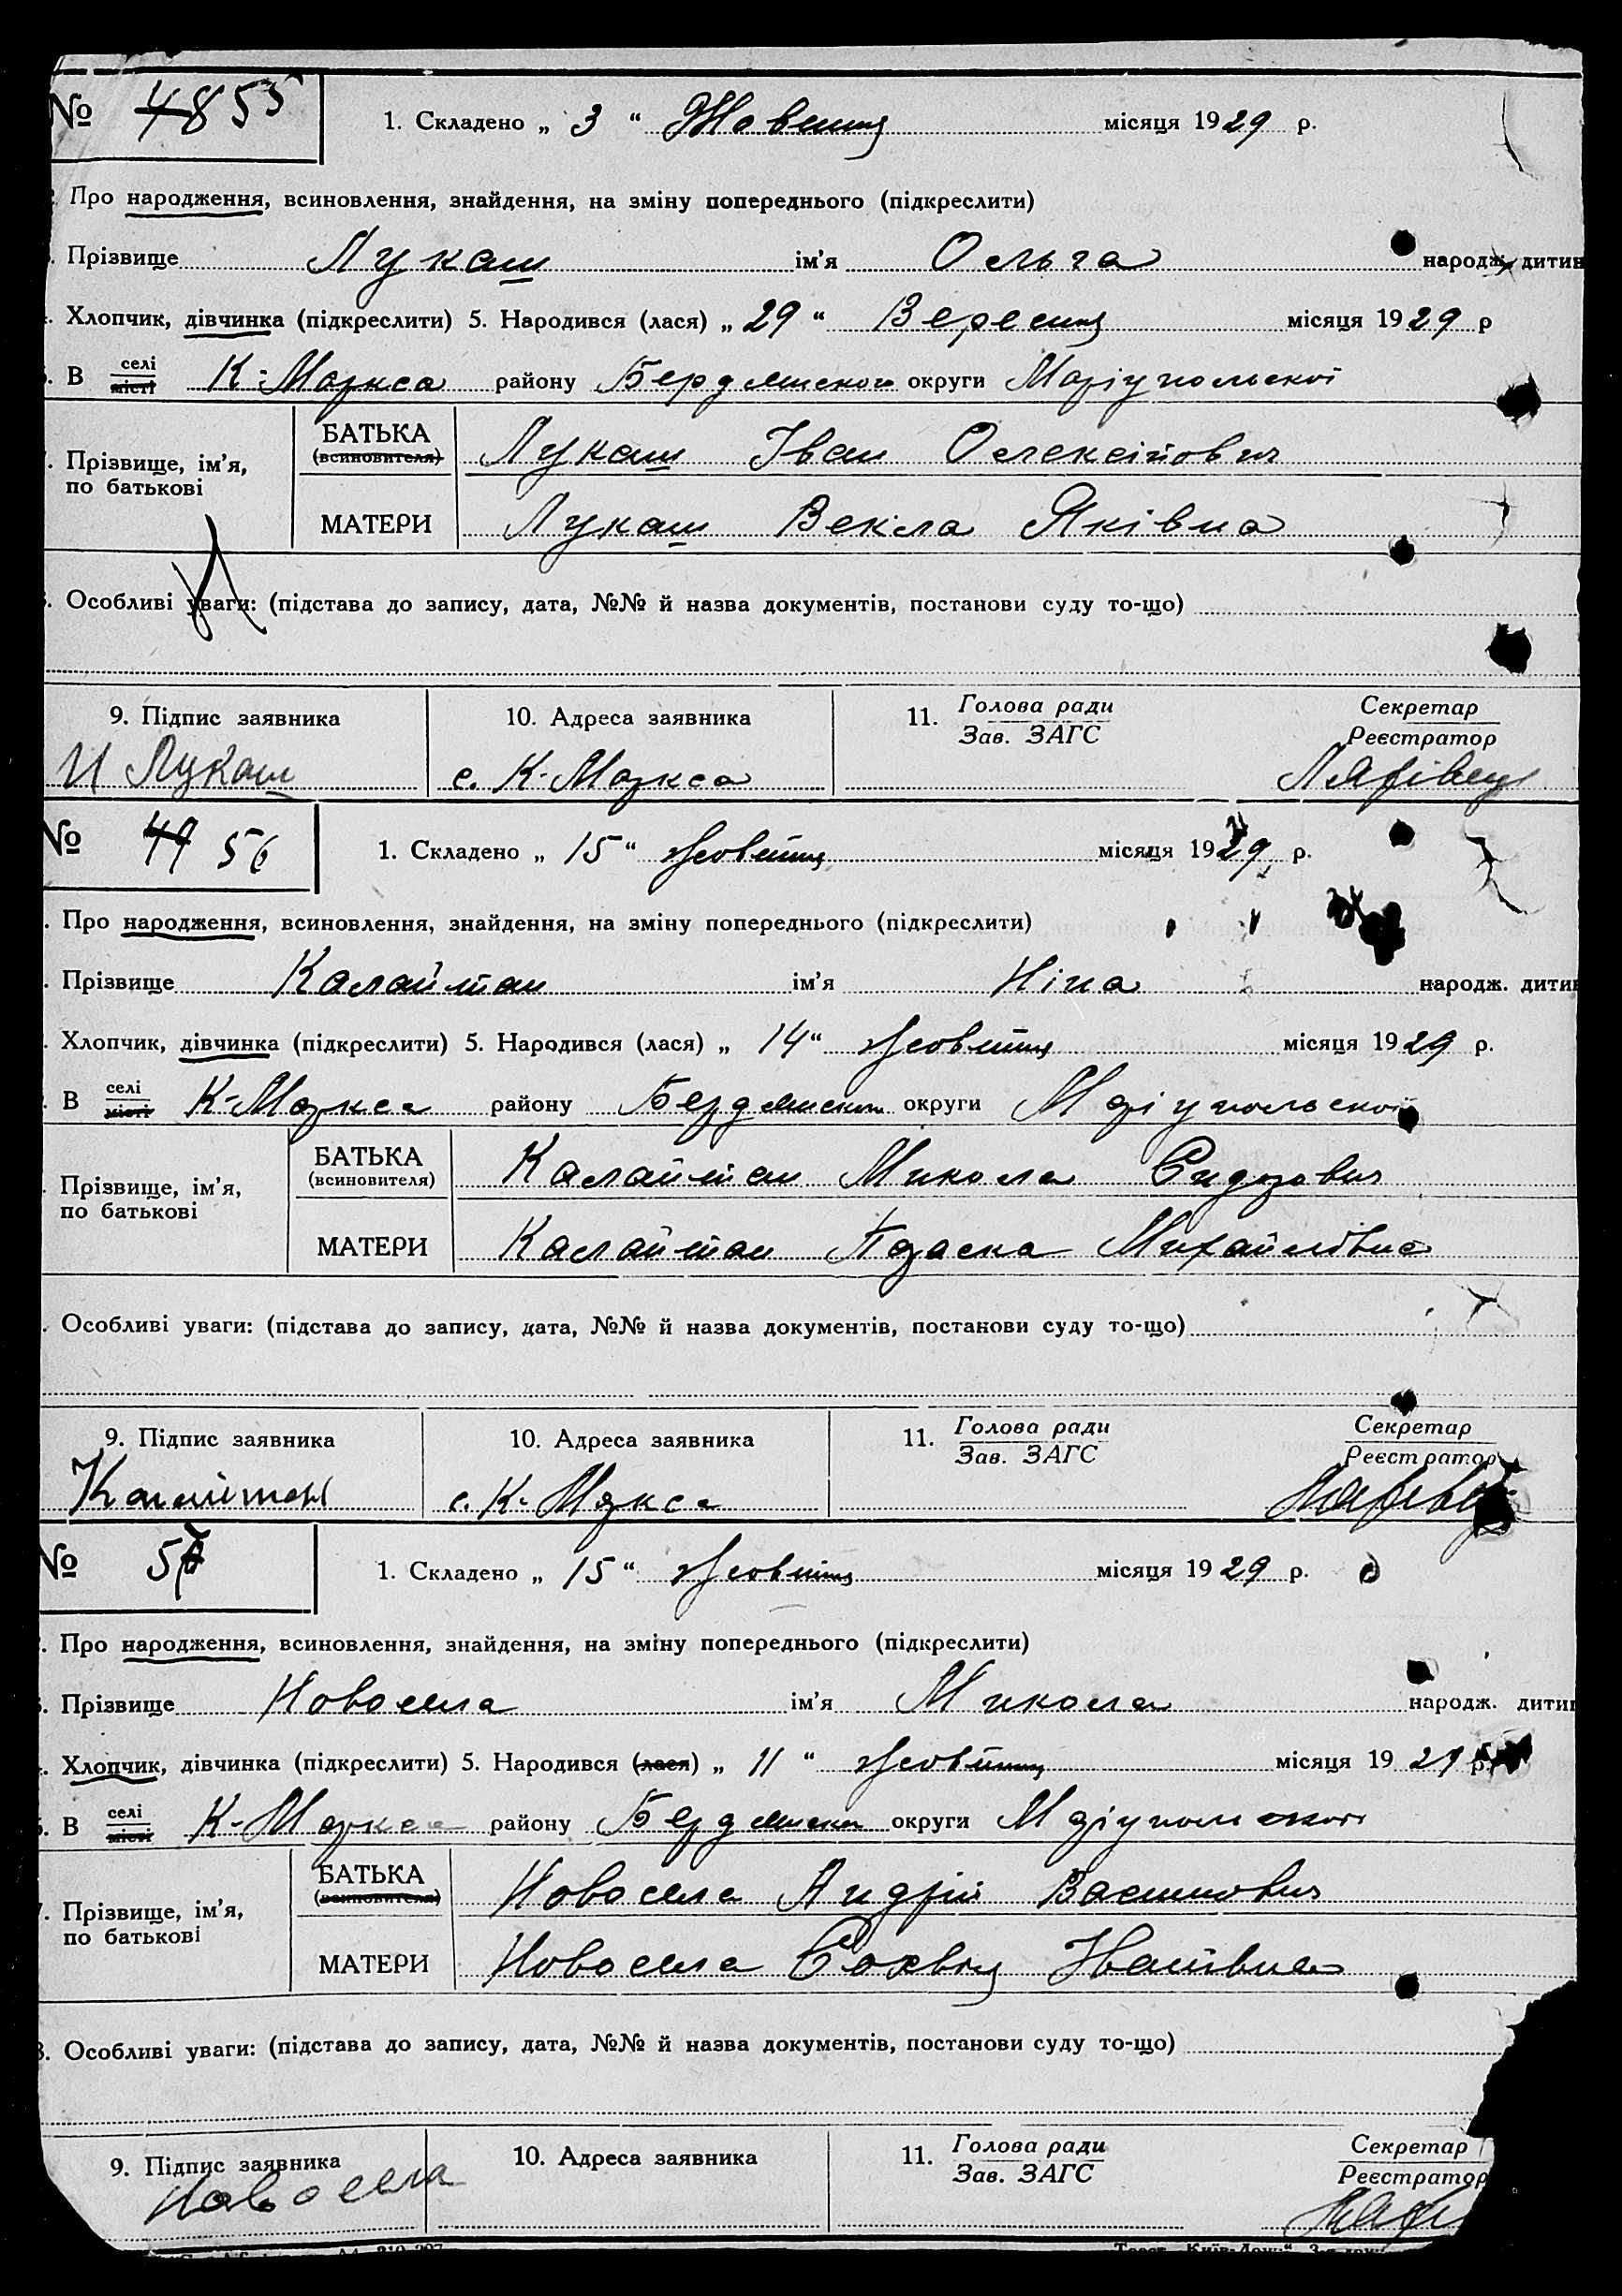 № 48 55
1. Складено „ 3 “ Жовтня місяця 1929 р.
Про народження, всиновлення, знайдення, на зміну попереднього (підкреслити)
Прізвище Лукаш ім’я Ольга народж. дитин
Хлопчик, дівчинка (підкреслити) 5. Народився (лася) „ 29 “ Вересня місяця 1929 р
В селі місті К-Маркса району Бердянського округи Маріупольскої
Прізвище, ім’я, по батькові
БАТЬКА (всиновителя) Лукаш Іван Олексійович
МАТЕРИ Лукаш Векла Яківна
Особливі уваги: (підстава до запису, дата, №№ й назва документів, постанови суду то-що)
9. Підпис заявника 10. Адреса заявника 11. Голова ради Зав. ЗАГС Секретар Реєстратор
И Лукаш с. К-Маркса
№ 49 56
1. Складено „ 15 “ жовтня місяця 1929 р.
Про народження, всиновлення, знайдення, на зміну попереднього (підкреслити)
Прізвище Калайтан ім’я Ніна народж. дитин
Хлопчик, дівчинка (підкреслити) 5. Народився (лася) „ 14 “ жовтня місяця 1929 р.
В селі місті К-Маркса району Бердянськ округи Маріупольскої
Прізвище, ім’я, по батькові
БАТЬКА (всиновителя) Калайтан Микола Сидорович
МАТЕРИ Калайтан Параска Михайлівна
Особливі уваги: (підстава до запису, дата, №№ й назва документів, постанови суду то-що)
9. Підпис заявника 10. Адреса заявника 11. Голова ради Зав. ЗАГС Секретар Реєстратор
Калайтан с. К-Маркса
№ 57
1. Складено „ 15 “ жовтня місяця 1929 р.
Про народження, всиновлення, знайдення, на зміну попереднього (підкреслити)
Прізвище Новосела ім’я Микола народж. дитин
Хлопчик, дівчинка (підкреслити) 5. Народився (лася) „ 11 “ жовтня місяця 1929 р.
В селі місті К-Маркса району Бердянськ округи Маріупольскої
Прізвище, ім’я, по батькові
БАТЬКА (всиновителя) Новосела Андрій Васильович
МАТЕРИ Новосела Софія Іванівна
8. Особливі уваги: (підстава до запису, дата, №№ й назва документів, постанови суду то-що)
9. Підпис заявника 10. Адреса заявника 11. Голова ради Зав. ЗАГС Секретар Реєстратор
Новосела